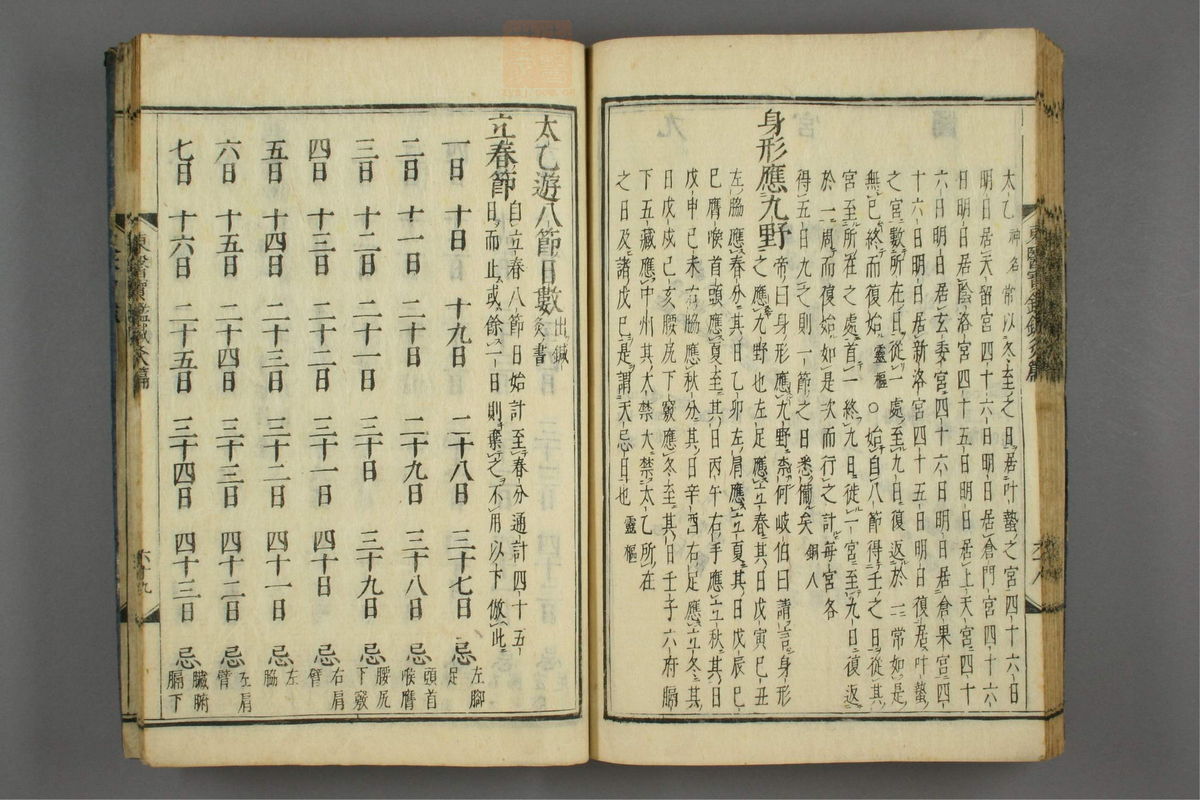 太乙神名常以冬至之日居叶蟄之宮四十六日
明日居天留宮四十六日明日居倉門宮四十六
日明日居陰洛宮四十五日明日居上天宮四十
六日明日居玄委宮四十六日明日居倉果宮四
十六日明日居新洛宮四十五日明日復居叶蟄
之宮數所在日從一處至九日復返於一常如是
無已終而復始靈樞○始自八節得王之日從其
宮至所在之處首一終九日徙一宮至九日復返
於一周而復始如是次而行之計每宮各
得五日九之則一節之日悉備矣銅人
身形應九野帝曰身形應九野奈何岐伯曰請言身形
之應九野也左足應立春其日戊寅己丑
左脇應春分其日乙卯左肩應立夏其日戊辰己
巳膺喉首頭應夏至其日丙午右手應立秋其日
戊申己未右脇應秋分其日辛酉右足應立冬其
日戊戌己亥腰尻下竅應冬至其日壬子六府膈
下五藏應中州其大禁大禁太乙所在
之日及諸戊己是謂天忌日也靈樞
東醫寶鑑鍼灸篇
太乙遊八節日數出鍼灸書
立春節自立春八節日始計至春分通計四十五
日而止或餘一日則棄之不用以下倣此
一日 十日 十九日 二十八日 三十七日 忌左腳足
二日 十一日 二十日 二十九日 三十八日 忌頭首喉膺
三日 十二日 二十一日 三十日 三十九日 忌腰尻下竅
四日 十三日 二十二日 三十一日 四十日 忌右肩臂
五日 十四日 二十三日 三十二日 四十一日 忌左脇
六日 十五日 二十四日 三十三日 四十二日 忌左肩臂
七日 十六日 二十五日 三十四日 四十三日 忌臟腑膈下
東醫寶鑑鍼灸篇
六十九